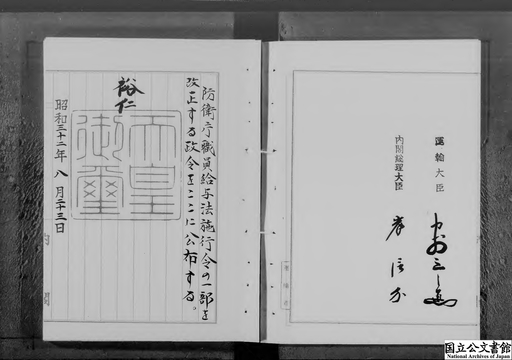 防衛庁職員給与法施行令の一部を
改正する政令をここに公布する。
裕仁
天皇
御璽
昭和三十二年八月二十三日
内閣
運輸大臣
内閣総理大臣
岸信介
国立公文書館
National Archives of Japan